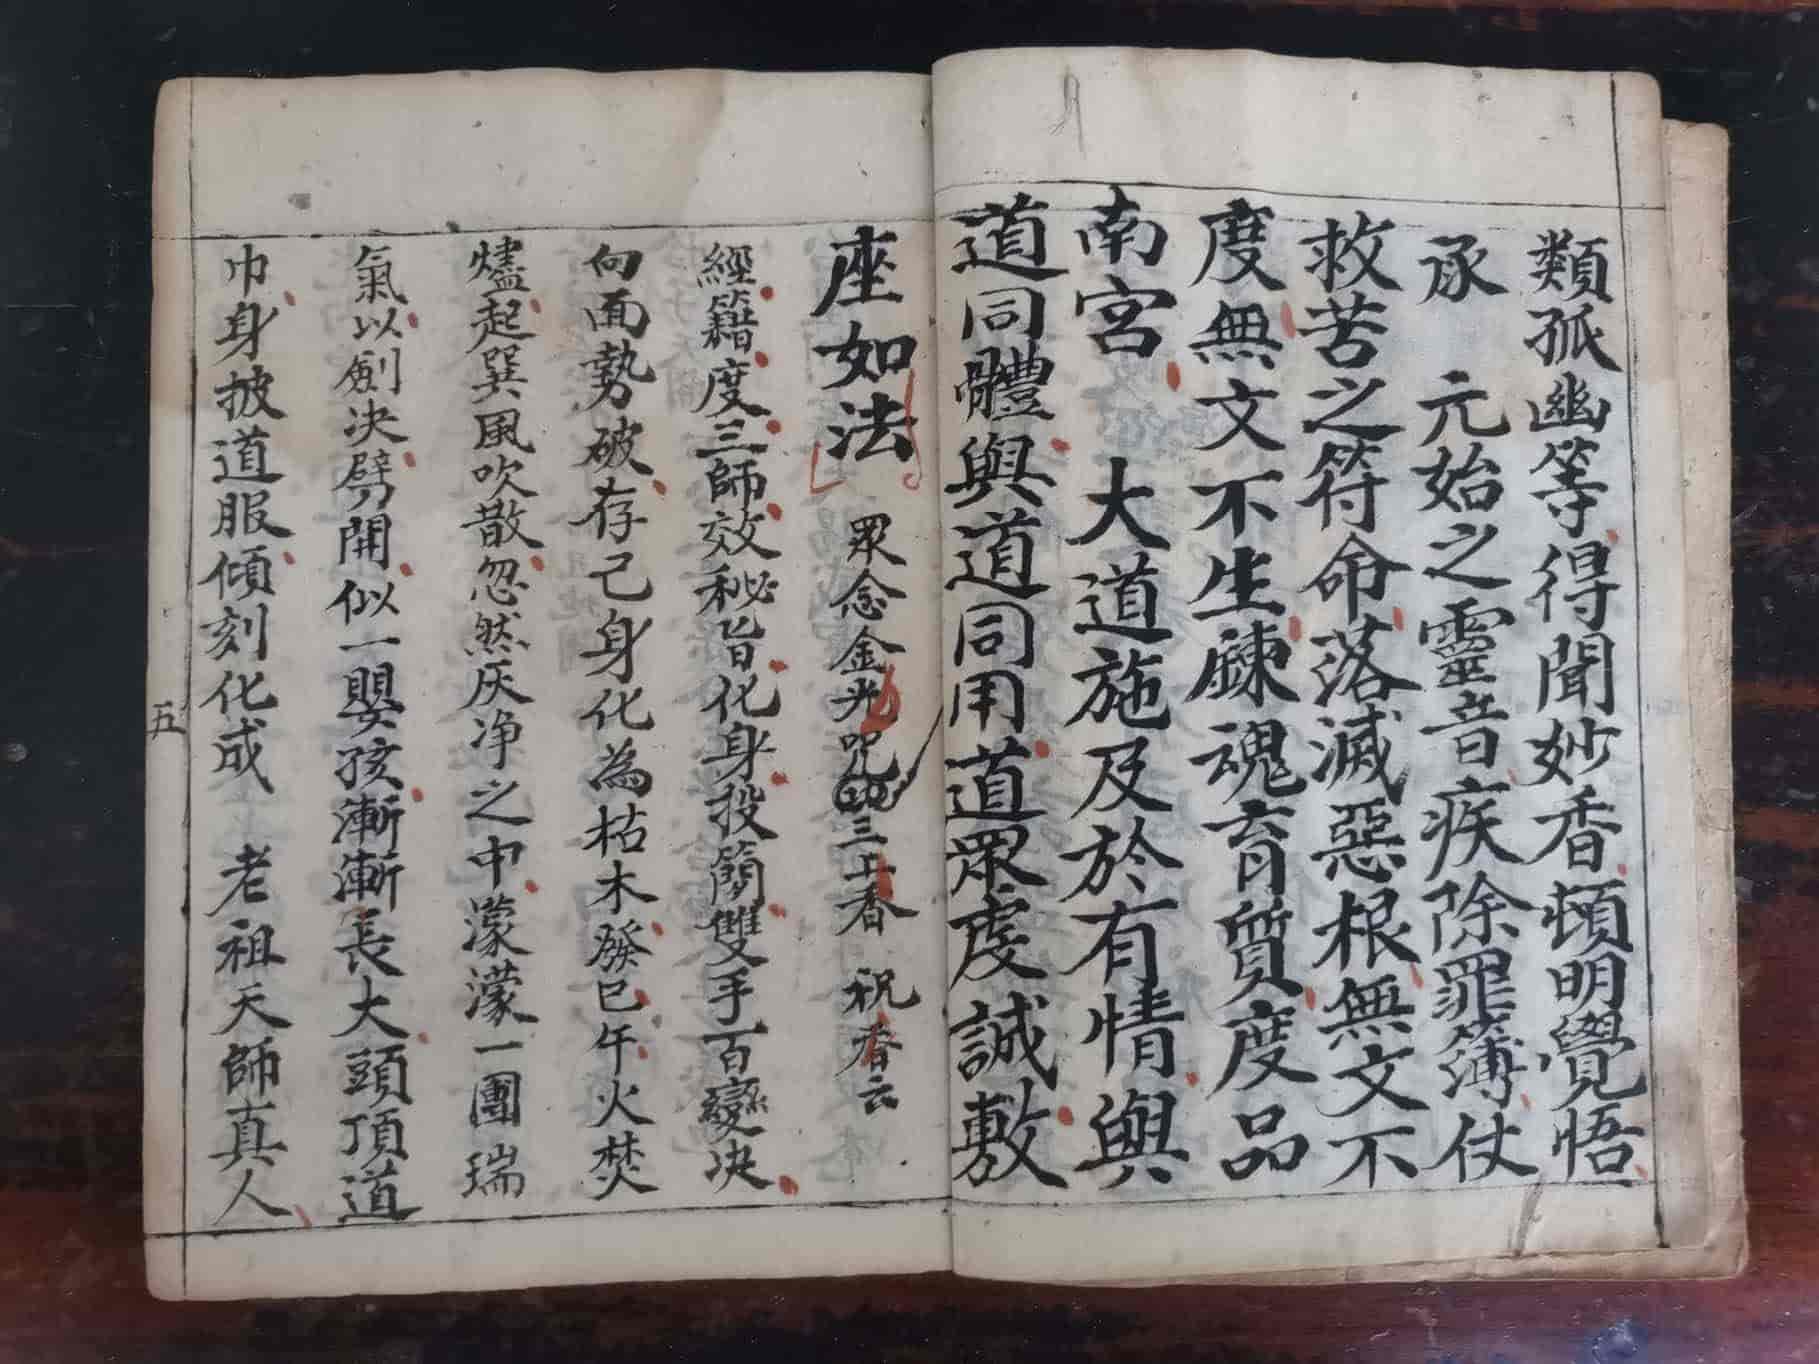 類孤幽等得聞妙香頓明覺悟
承　元始之靈音疾除罪簿仗
救苦之符命落滅惡根無文不
度無文不生鍊魂育質度品
南宮　大道施及於有情與
道同體與道同用道眾虔誠敷
座如法　眾念金光咒 三上香　祝香云
經籍度三師效秘旨化身投簡雙手百變决
向面勢破存己身化為枯木發巳午火焚
燼起巽風吹散忽然灰净之中濛濛一團瑞
氣以劍决劈開似一嬰孩漸漸長大頭頂道
巾身披道服傾刻化成　老祖天師真人
五